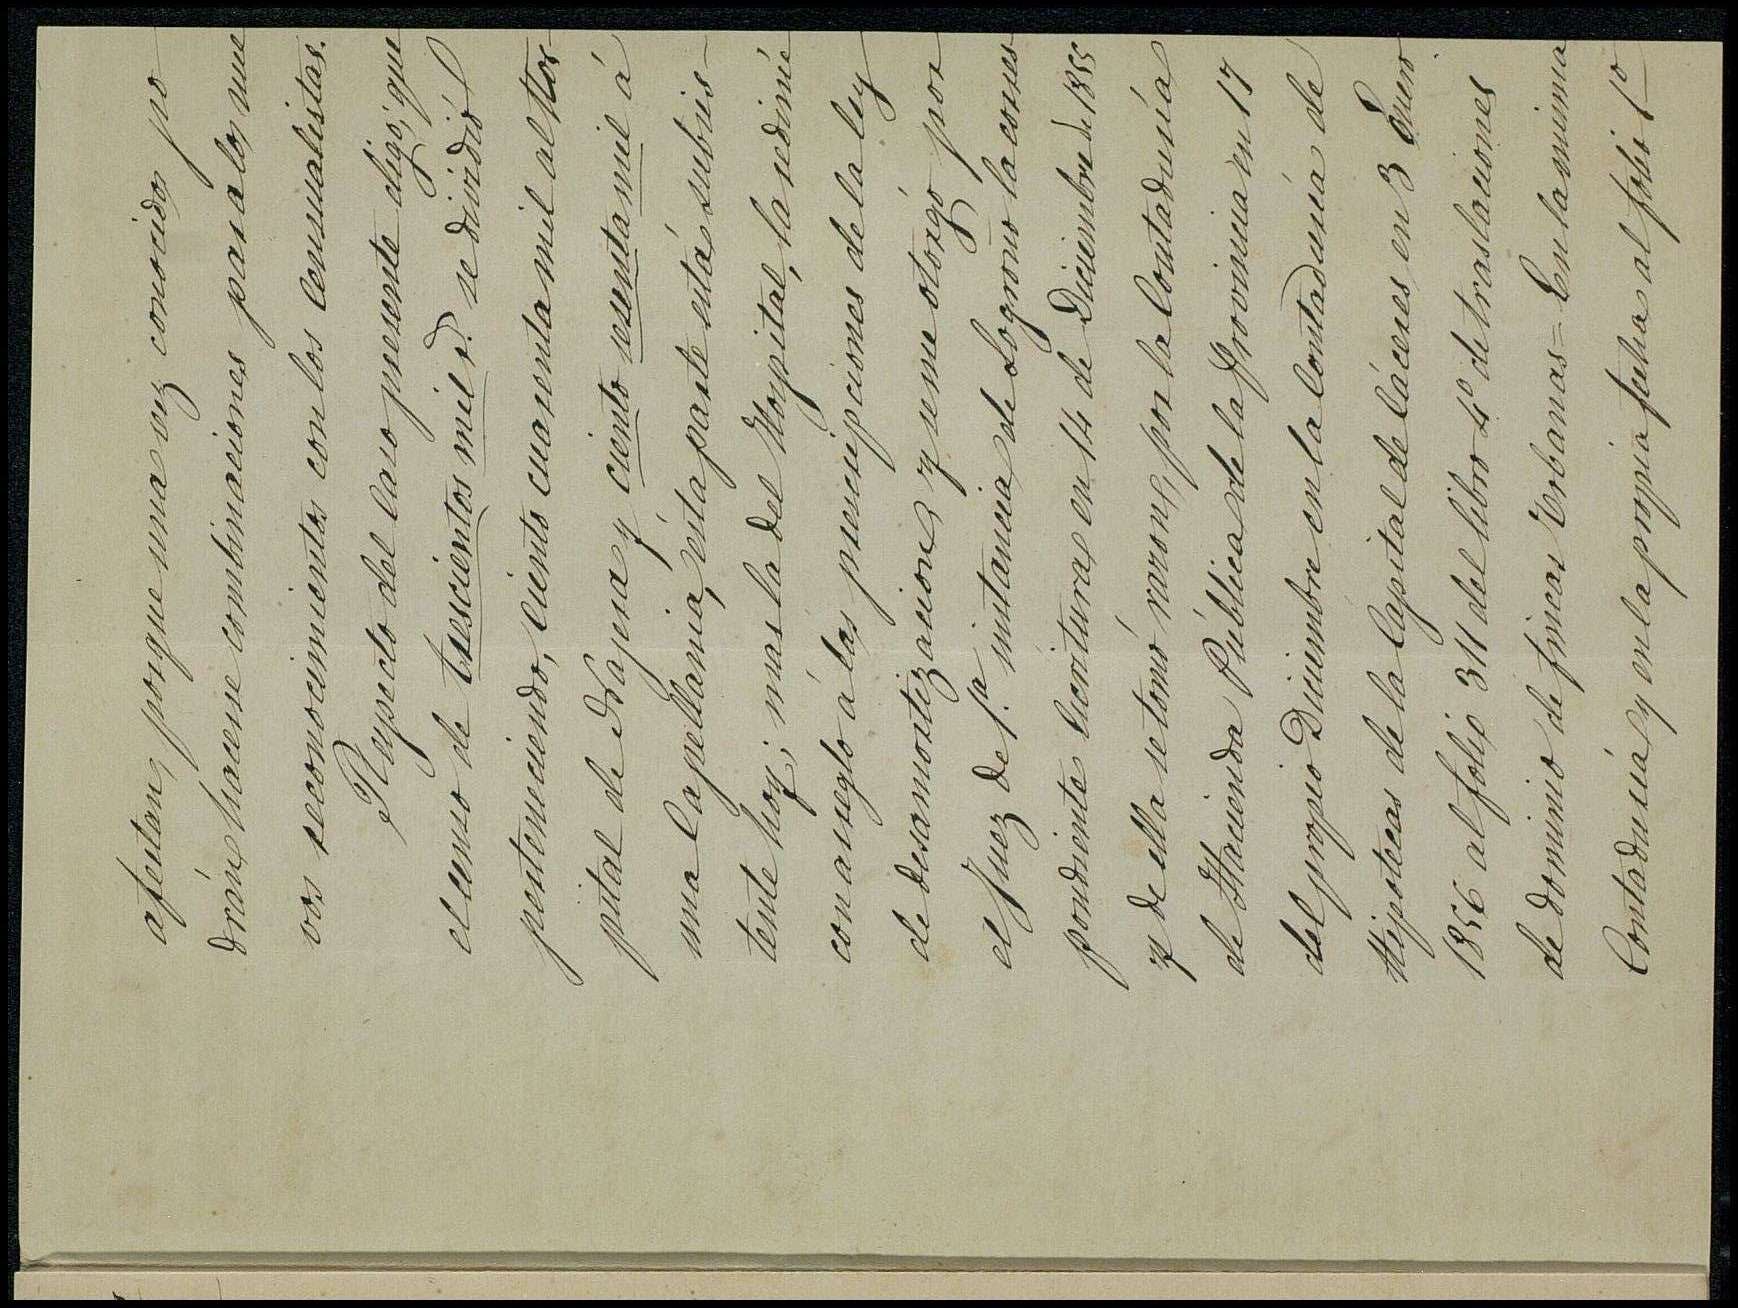 afectan, porque una vez conocidos po
drán hacerse combinaciones para los nue
vos reconocimientos con los censualistas.
Respecto del caso presente digo; que
el censo de trescientos mil r.s se dividió
perteneciendo, ciento cuarenta mil al Hos
pital de Najera y ciento sesenta mil á
una Capellania, esta parte está subsis-
tente hoy; mas la del Hospital, la redimí
con arreglo á las prescripciones de la ley
de desamortizacion y se me otorgó por
el Juez de 1.ª instancia de Logroño la corres
pondiente Escritura en 14 de Diciembre de 1855
y de ella se tomó razon, por la Contaduría
de Hacienda Pública de la Provincia en 17
del propio Diciembre en la Contaduría de
Hipotecas de la Capital de Cáceres en 3 Enero
1856 al folio 311 del libro 4º de traslaciones
de dominio de fincas Urbanas = En la misma
Contaduría y en la propia fecha al folio 1º